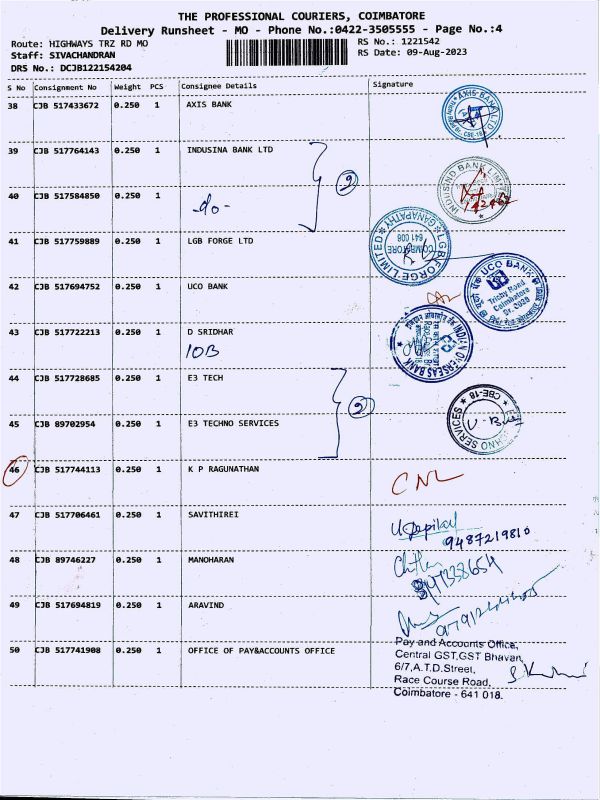 THE PROFESSIONAL COURIERS, COIMBATORE
Delivery Runsheet - MO - Phone No.:0422-3505555 - Page No.:4
Route: HIGHWAYS TRZ RD MO
RS No.: 1221542
Staff: SIVACHANDRAN
RS Date: 09-Aug-2023
DRS No.: DCJB122154204
S No Consignment No Weight PCS Consignee Details Signature
38 CJB 517433672 0.250 1 AXIS BANK
AXIS BANK LTD
39 CJB 517764143 0.250 1 INDUSINA BANK LTD
2
INDUSIND BANK LIMITED
40 CJB 517584850 0.250 1 -do-
41 CJB 517759889 0.250 1 LGB FORGE LTD
LGB FORGE LIMITED
GANAPATHY
COIMBATORE
641 006
42 CJB 517694752 0.250 1 UCO BANK
UCO BANK
Trichy Road
Coimbatore
43 CJB 517722213 0.250 1 D SRIDHAR
IOB
INDIAN OVERSEAS BANK
44 CJB 517728685 0.250 1 E3 TECH
2
CBE-18
45 CJB 89702954 0.250 1 E3 TECHNO SERVICES
46 CJB 517744113 0.250 1 K P RAGUNATHAN
CNL
47 CJB 517706461 0.250 1 SAVITHIREI
9487219810
48 CJB 89746227 0.250 1 MANOHARAN
49 CJB 517694819 0.250 1 ARAVIND
50 CJB 517741908 0.250 1 OFFICE OF PAY&ACCOUNTS OFFICE
Pay and Accounts Office,
Central GST,GST Bhavan,
6/7,A.T.D.Street,
Race Course Road,
Coimbatore - 641 018.